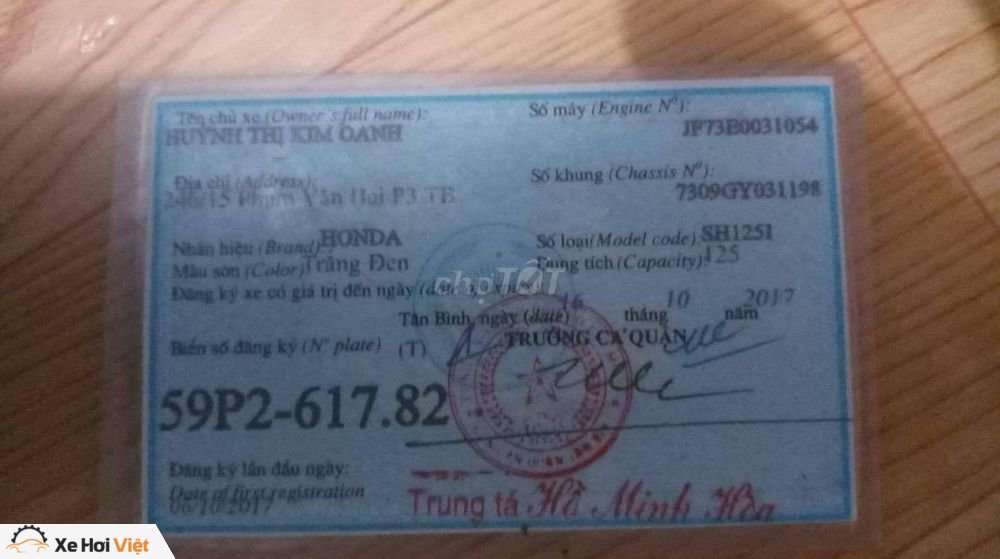 Tên chủ xe (Owner's full name):
HUỲNH THỊ KIM OANH
Số máy (Engine Nº):
JF73E0031054
Địa chỉ (Address):
246/15 Phạm Văn Hai P3 TB
Số khung (Chassis Nº):
7309GY031198
Nhãn hiệu (Brand) HONDA
Số loại (Model code): SH125I
Màu sơn (Color) Trắng Đen
Dung tích (Capacity): 125
Đăng ký xe có giá trị đến ngày (date of expiry)
chợTỐT
Tân Bình, ngày (date) 16 tháng 10 năm 2017
Biển số đăng ký (Nº plate) (T)
TRƯỞNG CA QUẬN
59P2-617.82
Đăng ký lần đầu ngày:
Date of first registration
06/10/2017
Trung tá Hồ Minh Hòa
Xe Hơi Việt